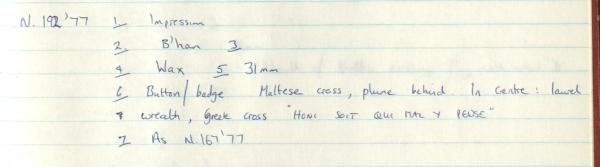 N. 192 '77 1 Impression
2 B'han 3
4 Wax 5 31mm
6 Button/badge Maltese cross, plume behind. In centre: laurel
8 wreath, Greek cross "HONI SOIT QUI MAL Y PENSE"
7 As N.167'77